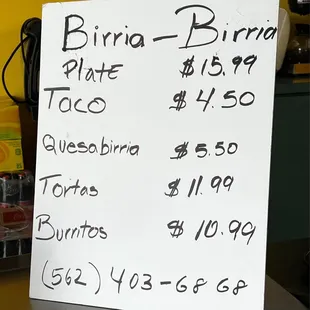 Birria - Birria
Plate $15.99
Taco $4.50
Quesabirria $5.50
Tortas $11.99
Burritos $10.99
(562) 403-6868